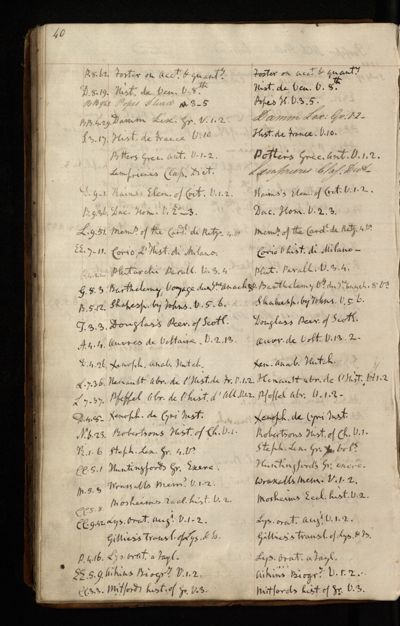 40
R.8.62. Foster on acct. & quant.y Foster on acct. & quant.y
D.8.19. Hist. de Ven. V.8.th Hist. de Ven. V. 8.th
Popes Iliad 3-5 Popes Il. V.3.5.
Damm Lex. Gr. V.1.2. Damm Lex. Gr. V.1.2.
I.3.17. Hist. de France V.10 Hist. de France. V.10.
Potters Grec. Ant. V.1-2. Potters Grec. Ant. V.1.2.
Lemprieres Clas. Dict. Lemprieres Clas. Dict.
Kaims's Elem. of Crit. V.1.2. Kaims's Elem. of Crit. V.1.2.
Dac. Hom. V.2-3. Dac. Hom. V.2.3.
L.9.51. Mem.s of the Card. de Retz. 4.vs Mem.s of the Card. de Retz. 4.Vs
EE.7-11. Corio L'Hist. di Milano. Corio l'hist. di Milano-
Plutarchi Parall. V.3.4 Plut. Parall. V.3.4.
G.8.3. Barthelemy Voyage du Jne Anach. 8 Barthelemy V. du Jne Anach. 8 Vs
B.5.12. Shakesp. by Johns. V.5.6. Shakesp. by Johns. V.5.6.
T.3.3. Douglas's Peer. of Scotl. Douglas's Peer. of Scotl.
A.4.4. Œuvres de Voltaire. V.2.13. Œuvr. de Volt. V.13.2-
Xenoph. anab. Hutch. Xen. anab. Hutch.
L.7.36. Henault abr. de l'Hist. de Fr. V.1.2 Henault abr. de l'Hist. V.1.2
L.7-37. Pfeffel Abr. de l'hist. d'All. V.1.2. Pfeffel abr. V.1.2-
Xenoph. de Cyri Inst. Xenoph. de Cyri Inst.
N.6.23. Robertsons Hist. of Ch. V.1. Robertsons Hist. of Ch. V.1.
R.1.6 Steph. Lex. Gr. 4.Vs Steph. Lex. Gr.
CC.5.1 Huntingfords Gr. Exerc. Huntingfords Gr. exerc.
M.5.3 Wraxalls Mem.s V.1-2. Wraxalls Mem. V.1-2.
CC.5.8 Mosheims Eccl. hist. V.2. Mosheims Eccl. hist. V.2
CC.9.12 Lys. orat. aug. V.1-2. Lys. orat. aug. V.1.2.
Gillies's transl. of Lys. & Is. Gillies's transl. of Lys. & Is.
P.4.16. Lys. orat. a Tayl. Lys. orat. a Tayl.
EE.5.9. Aikins Biogr.y V.1.2. Aikins Biogr.y V.1.2.
CC.3.3. Mitfords hist. of Gr. V.3. Mitfords hist. of Gr. V.3.